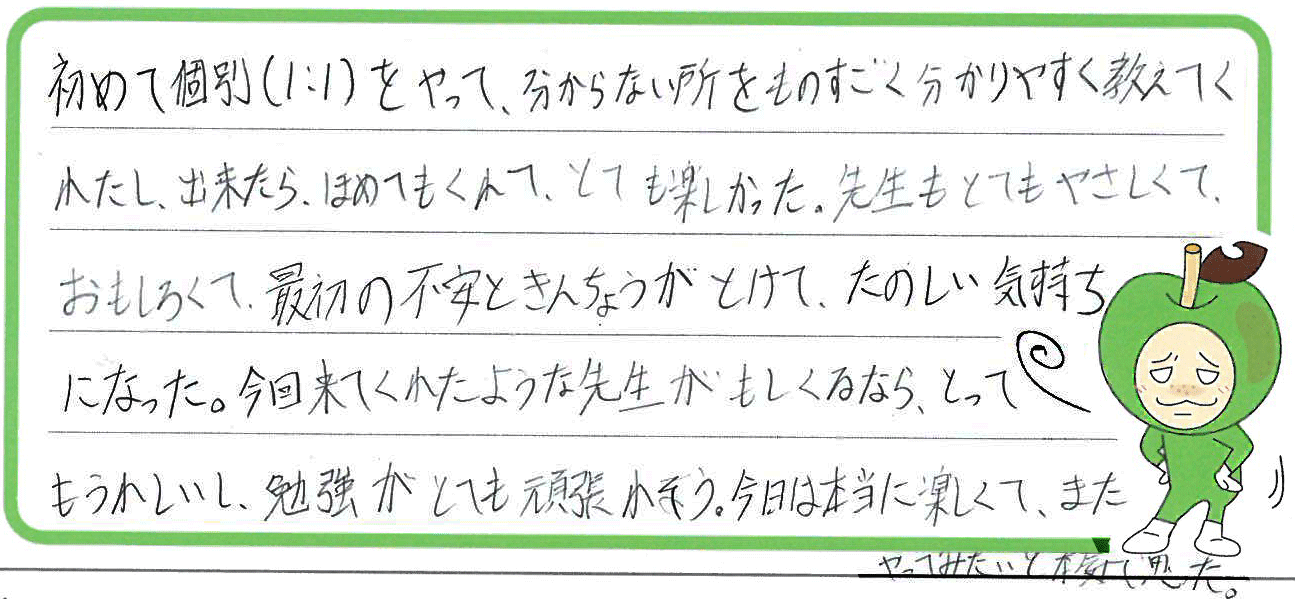 初めて個別(1:1)をやって、分からない所をものすごく分かりやすく教えてく
れたし、出来たら、ほめてもくれて、とても楽しかった。先生もとてもやさしくて、
おもしろくて、最初の不安ときんちょうがとけて、たのしい気持ち
になった。今回来てくれたような先生がもしくるなら、とって
もうれしいし、勉強がとても頑張れそう。今日は本当に楽しくて、また
やってみたいと本気で思った。